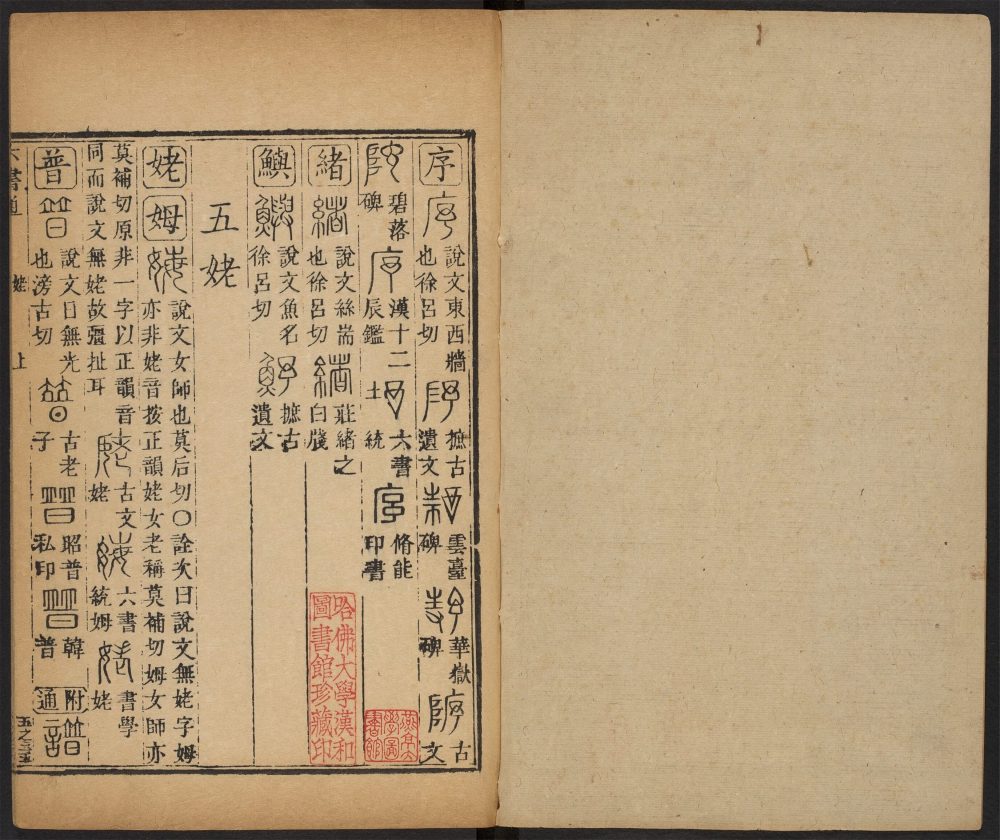 序 說文東西牆也徐呂切 摭古遺文 雲臺碑 華嶽碑 古文
碧落碑 漢十二辰鑑 六書統 脩能印書
緒 說文絲耑也徐呂切 莊緒之白牋
鱮 說文魚名徐呂切 摭古遺文
五姥
姥 姆 說文女師也莫后切○詮次曰說文無姥字姆亦非姥音按正韻姥女老稱莫補切姆女師亦
莫補切原非一字以正韻音同而說文無姥故彊扯耳 古文姥 六書統姆 書學姥
普 說文日無光也滂古切 古老子 昭普私印 韓普 附通 譜
六書通 姥 上
哈佛大學漢和
圖書館珍藏印